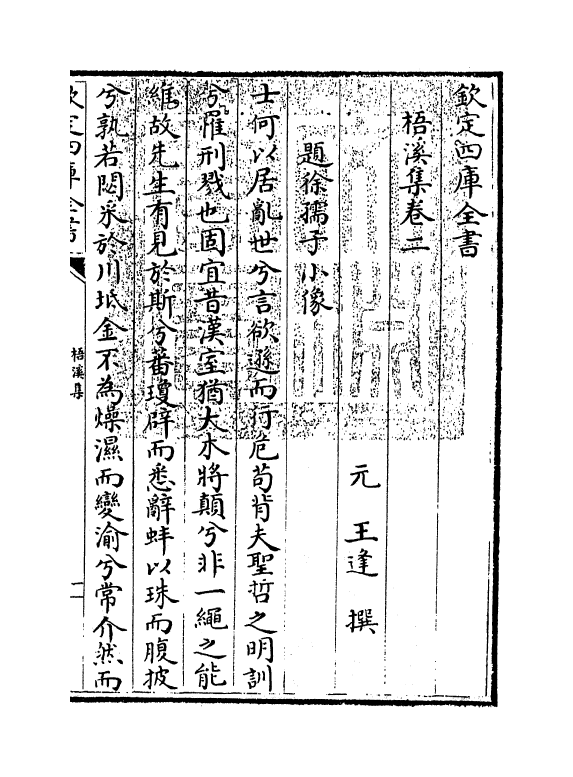 欽定四庫全書
梧溪集卷二
元 王逢 撰
題徐孺子小像
士何以居亂世兮言欲遜而行危苟背夫聖哲之明訓
兮罹刑戮也固宜昔漢室猶大木將顛兮非一繩之能
維故先生有見於斯兮蕃瓊辟而悉辭蚌以珠而腹披
兮孰若閟采於川坻金不為燥濕而變渝兮常介然而
欽定四庫全書
梧溪集